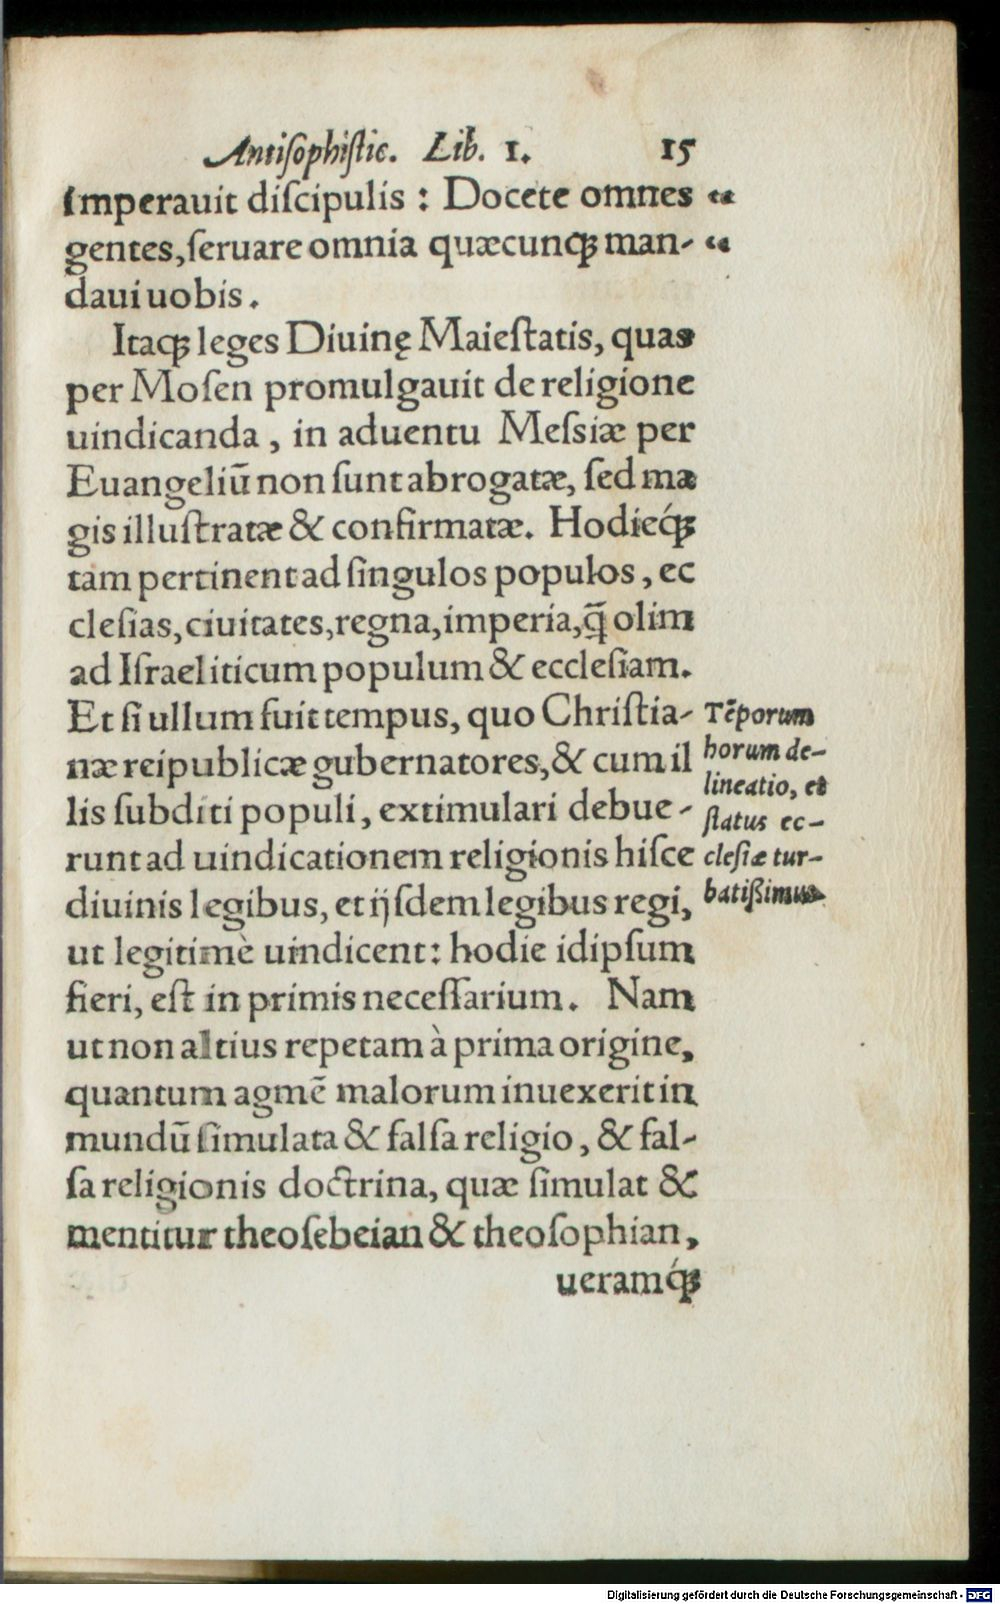 Antiſophiſtic. Lib. 1. 15
imperauit diſcipulis : Docete omnes „
gentes, ſeruare omnia quæcunqꝫ man- „
daui uobis.
Itaqꝫ leges Diuinę Maieſtatis, quas
per Moſen promulgauit de religione
uindicanda, in aduentu Meſsiæ per
Euangeliū non ſunt abrogatæ, ſed ma
gis illuſtratæ & confirmatæ. Hodieq́ꝫ
tam pertinent ad ſingulos populos, ec
cleſias, ciuitates, regna, imperia, q̃ olim
ad Iſraeliticum populum & eccleſiam.
Et ſi ullum fuit tempus, quo Chriſtia-
næ reipublicæ gubernatores, & cum il
lis ſubditi populi, extimulari debue-
runt ad uindicationem religionis hiſce
diuinis legibus, et ijſdem legibus regi,
ut legitimè uindicent: hodie idipſum
fieri, eſt in primis neceſſarium. Nam
ut non altius repetam à prima origine,
quantum agmē malorum inuexerit in
mundū ſimulata & falſa religio, & fal-
ſa religionis doctrina, quæ ſimulat &
mentitur theoſebeian & theoſophian,
ueramq́ꝫ
Tēporum
horum de-
lineatio, et
ſtatus ec-
cleſiæ tur-
batißimus.
Digitalisierung gefördert durch die Deutsche Forschungsgemeinschaft - DFG